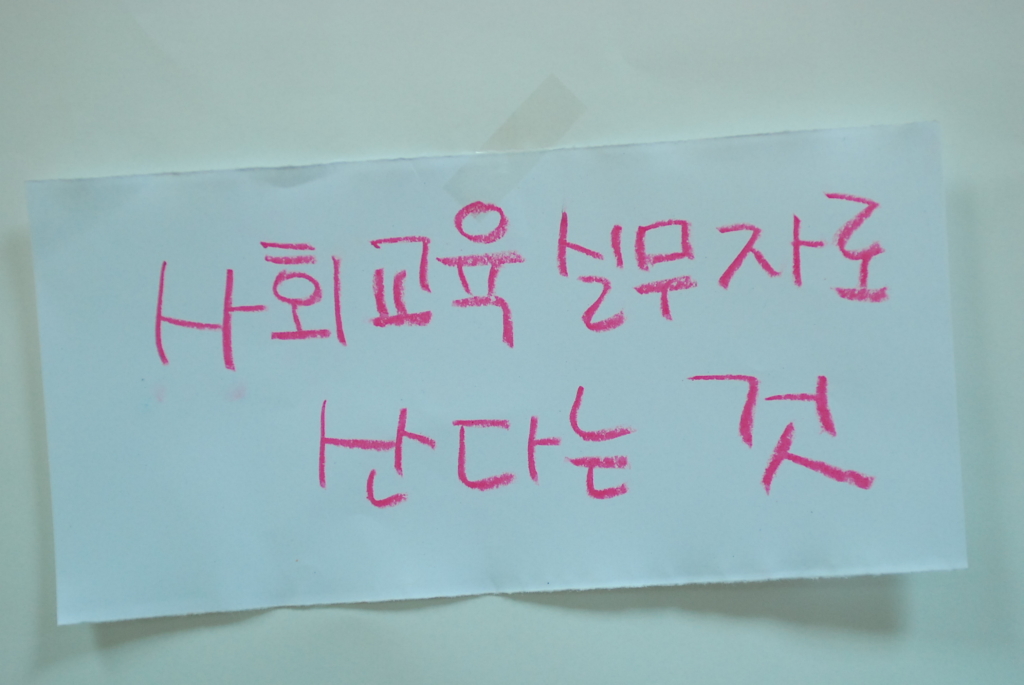 사회교육 실무자로
산다는 것